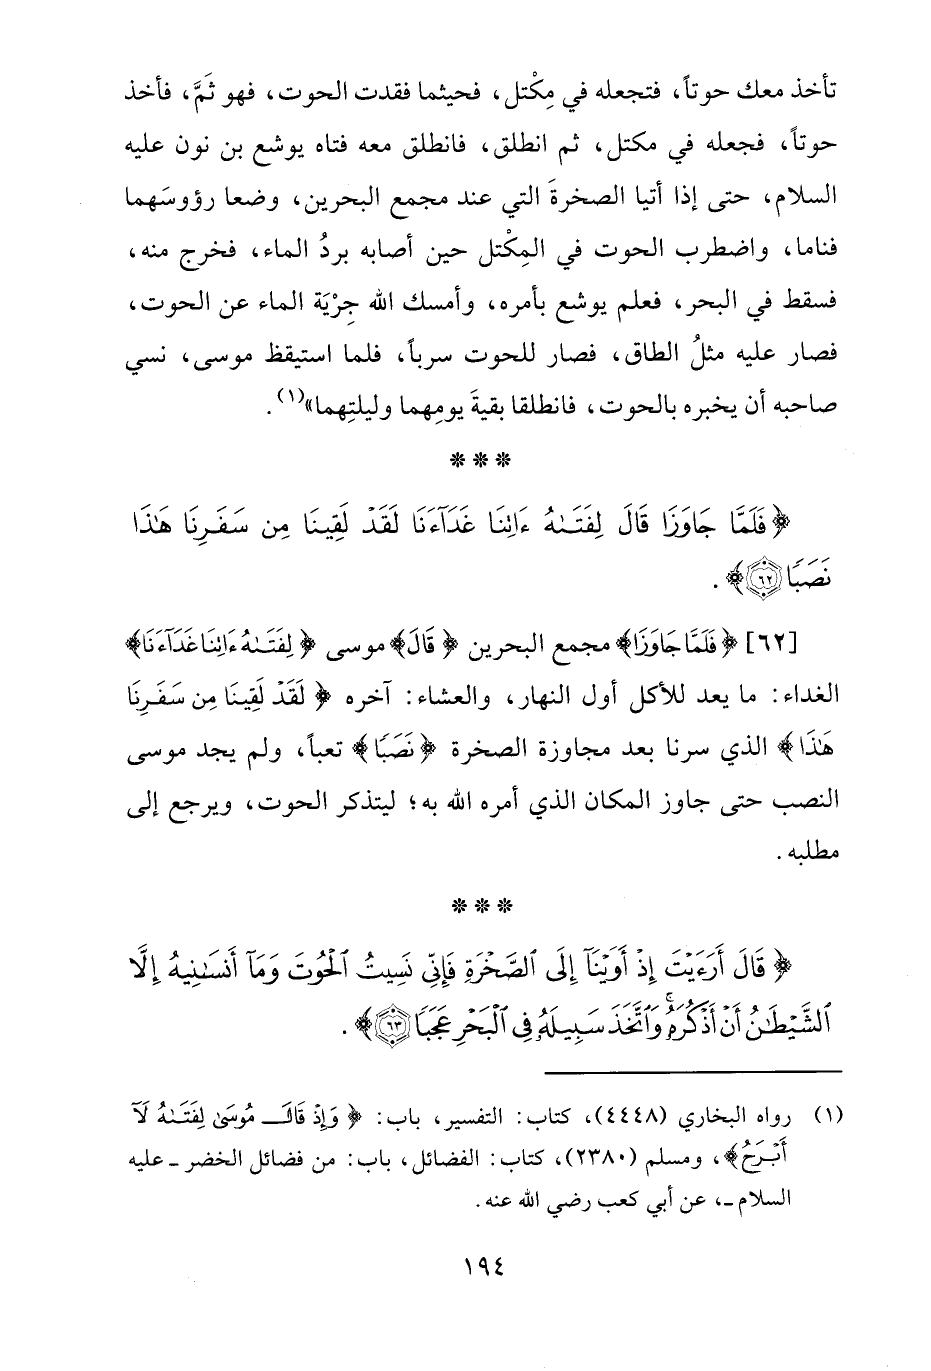 تأخذ معك حوتاً، فتجعله في مِكْتل، فحيثما فقدت الحوت، فهو ثَمَّ، فأخذ
حوتاً، فجعله في مكتل، ثم انطلق، فانطلق معه فتاه يوشع بن نون عليه
السلام، حتى إذا أتيا الصخرةَ التي عند مجمع البحرين، وضعا رؤوسَهما
فناما، واضطرب الحوت في المِكْتل حين أصابه بردُ الماء، فخرج منه،
فسقط في البحر، فعلم يوشع بأمره، وأمسك الله جِرْيَة الماء عن الحوت،
فصار عليه مثلُ الطاق، فصار للحوت سرباً، فلما استيقظ موسى، نسي
صاحبه أن يخبره بالحوت، فانطلقا بقيةَ يومِهما وليلتِهما»(١).
***
﴿ فَلَمَّا جَاوَزَا قَالَ لِفَتَىٰهُ ءَاتِنَا غَدَآءَنَا لَقَدْ لَقِينَا مِن سَفَرِنَا هَٰذَا
نَصَبًا ٦٢﴾.
[٦٢] ﴿ فَلَمَّا جَاوَزَا﴾ مجمع البحرين ﴿ قَالَ﴾ موسى ﴿ لِفَتَىٰهُ ءَاتِنَا غَدَآءَنَا﴾
الغداء: ما يعد للأكل أول النهار، والعشاء: آخره ﴿ لَقَدْ لَقِينَا مِن سَفَرِنَا
هَٰذَا﴾ الذي سرنا بعد مجاوزة الصخرة ﴿نَصَبًا﴾ تعباً، ولم يجد موسى
النصب حتى جاوز المكان الذي أمره الله به؛ ليتذكر الحوت، ويرجع إلى
مطلبه.
***
﴿ قَالَ أَرَءَيْتَ إِذْ أَوَيْنَآ إِلَى ٱلصَّخْرَةِ فَإِنِّي نَسِيتُ ٱلْحُوتَ وَمَآ أَنسَىٰنِيهُ إِلَّا
ٱلشَّيْطَٰنُ أَنْ أَذْكُرَهُۥۚ وَٱتَّخَذَ سَبِيلَهُۥ فِي ٱلْبَحْرِ عَجَبًا ٦٣﴾.
(١) رواه البخاري (٤٤٤٨)، كتاب: التفسير، باب: ﴿ وَإِذْ قَالَ مُوسَىٰ لِفَتَىٰهُ لَآ
أَبْرَحُ﴾، ومسلم (٢٣٨٠)، كتاب: الفضائل، باب: من فضائل الخضر ـ عليه
السلام ـ، عن أبي كعب رضي الله عنه.
١٩٤